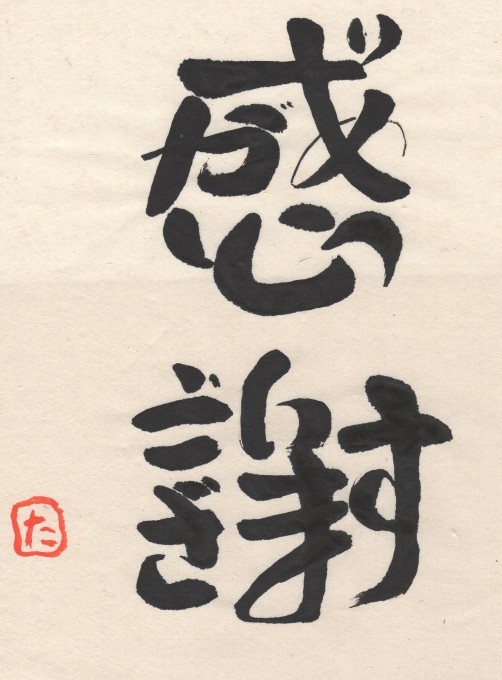 感謝
た